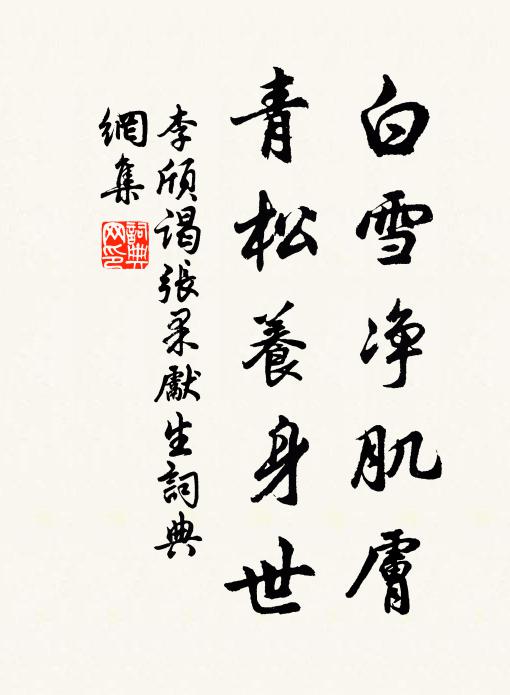 白雪净肌膚
青松養身世
李頎謁張果獻生詞典
網集
詞典
网印